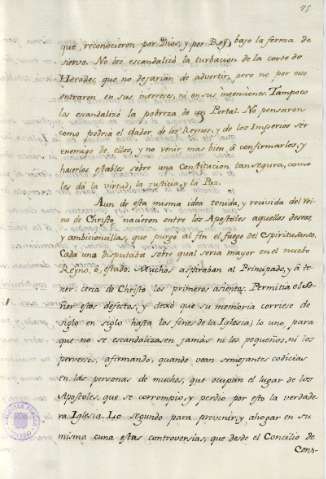 95
que reconocieron por Dios, y por Rey bajo la forma de
siervo. No los escandalizó la turbacion de la corte de
Herodes, que no dejarian de advertir, pero no por eso
entraron en sus intereses, ni en sus
Tampoco
les escandalizó la pobreza de un Portal. No pensaron
como podria el dador de los Reynos, y de los Imperios ser
enemigo de ellos, y no venir mas bien á confirmarlos, y
hacerlos estables sobre una Constitucion tan segura, como
les dá la virtud, la justicia y la Paz.
Aun de esta misma idea tenida, y recivida del rei
no de Christo nacieron entre los Apostoles aquellos deseos,
y ambicioncillas, que purgó al fin el fuego del Espiritu santo.
Cada uno disputaba sobre qual seria mayor en el nuebo
Reyno, ó estado. Muchos aspiraban al Principado, y á te-
ner cerca de Christo los primeros asientos. Permitia el Se-
ñor estos defectos, y dexó que su memoria corriese de
siglo en siglo hasta los fines de la Iglesia; lo uno para
que no se escandalizasen jamás ni los pequeños, ni los
perversos, afirmando, quando vean semejantes codicias
en las personas de muchos, que ocupan el lugar de los
Apostoles, que se corrompió, y perdio por esto la verdade
ra Iglesia. Lo segundo para prevenir, y ahogar en su
misma cuna estas controversias, que desde el Concilio de
Cons-